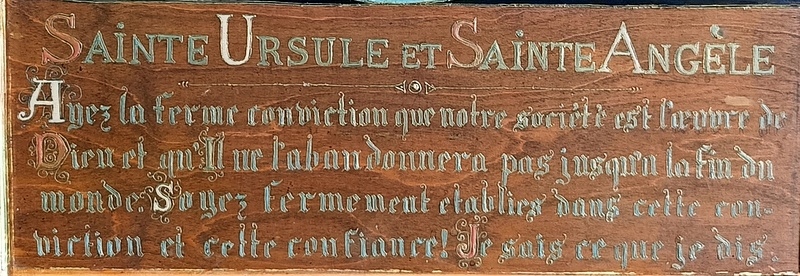 SAINTE URSULE ET SAINTE ANGÈLE
Ayez la ferme conviction que notre société est l'œuvre de
Dieu et qu'Il ne l'abandonnera pas jusqu'à la fin du
monde. Soyez fermement établies dans cette con-
viction et cette confiance! Je sais ce que je dis.